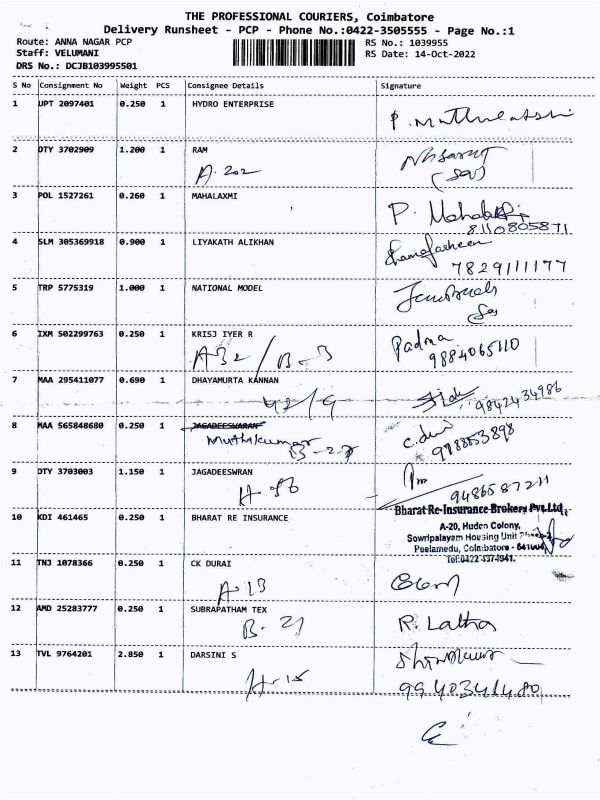 THE PROFESSIONAL COURIERS, Coimbatore
Delivery Runsheet - PCP - Phone No.:0422-3505555 - Page No.:1
Route: ANNA NAGAR PCP RS No.: 1039955
Staff: VELUMANI RS Date: 14-Oct-2022
DRS No.: DCJB103995501
S No Consignment No Weight PCS Consignee Details Signature
1 UPT 2097401 0.250 1 HYDRO ENTERPRISE
2 DTY 3702909 1.200 1 RAM
A-202
3 POL 1527261 0.260 1 MAHALAXMI P.
8110805871
4 SLM 305369918 0.900 1 LIYAKATH ALIKHAN
7829111177
5 TRP 5775319 1.000 1 NATIONAL MODEL
6 IXM 502299763 0.250 1 KRISJ IYER R Padma
A32 / B-3 9884065110
7 MAA 295411077 0.690 1 DHAYAMURTA KANNAN
42/9 9842434986
8 MAA 565848680 0.250 1 JAGADEESWARAN
Muthukumar
B-27
9 DTY 3703003 1.150 1 JAGADEESWRAN
9486587211
10 KDI 461465 0.250 1 BHARAT RE INSURANCE Bharat Re-Insurance Brokers Pvt.Ltd.,
A-20, Hudco Colony,
Sowripalayam Housing Unit
Peelamedu, Coimbatore - 641004
11 TNJ 1078366 0.250 1 CK DURAI
A-13
12 AMD 25283777 0.250 1 SUBRAPATHAM TEX R. Latha
B-21
13 TVL 9764201 2.850 1 DARSINI S
9940341480